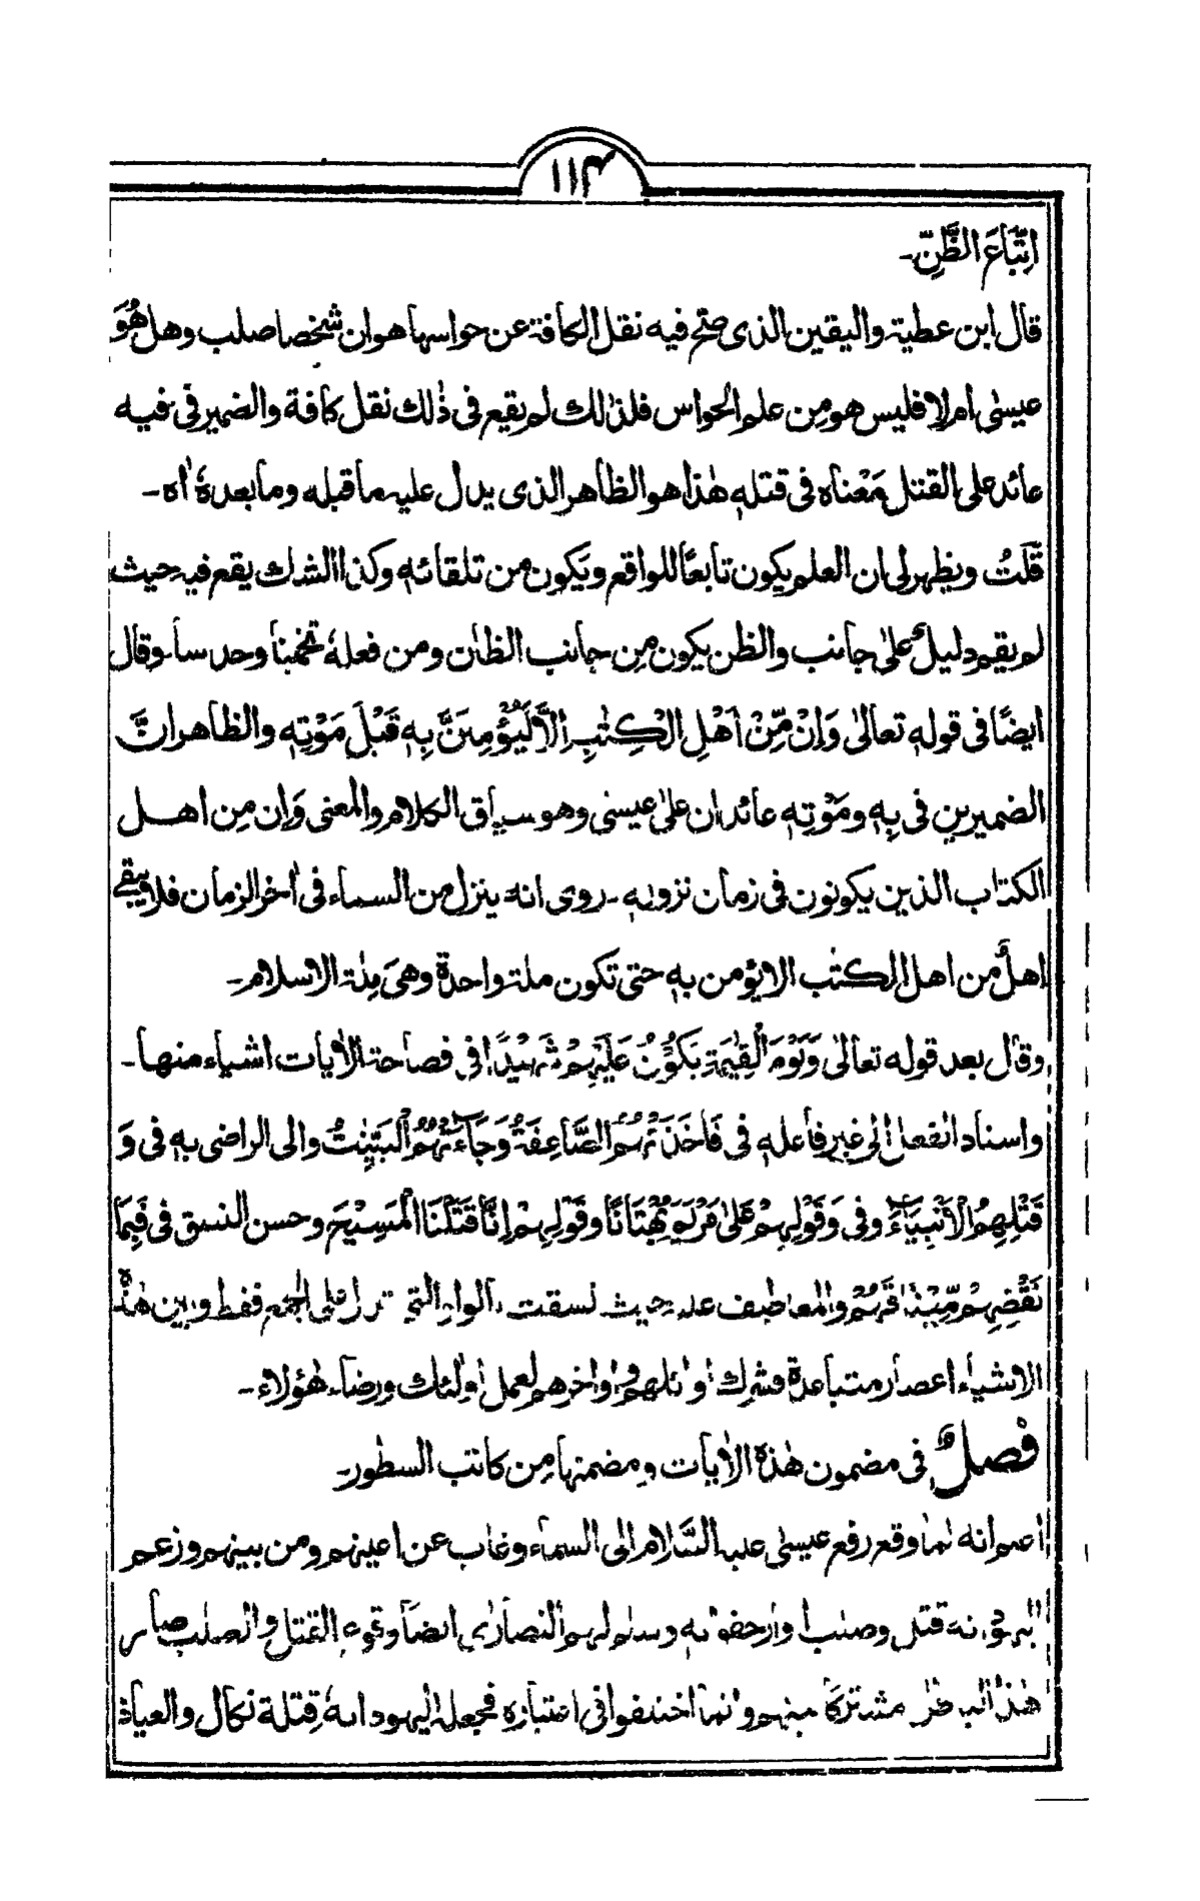 ۱۱۴
اِتِّبَاعَ الظَّنِّ۔
قال ابن عطیۃ والیقین الذی صح فیہ نقل الکافۃ عن حواسہا ھوان شخصا صلب وھل ھُوَ
عیسٰی ام لا فلیس ھومن علم الحواس فلذٰلک لم یقع فی ذٰلک نقل کافۃ والضمیر فی فیہ
عائد علی القتل مَعْناہ فی قتلہٖ ھٰذا ھو الظاھر الذی یدل علیہ ما قبلہ وما بعدہٗ اہ۔
قُلْتُ ویظہر لی ان العلم یکون تابعًا للواقع ویَکون من تلقائہٖ وکذا الشک یقع فیہ حیث
لم یقم دلیلٌ علیٰ جانب والظن یکون مِن جانب الظان ومن فعلہٗ تخمینا وحدسا۔ وقال
ایضًا فی قولہٖ تعالیٰ وَاِنْ مِّنْ اَھْلِ الْکِتٰبِ اِلَّا لَیُؤْمِنَنَّ بِہٖ قَبْلَ مَوْتِہٖ والظاھر انَّ
الضمیرین فی بِہٖ ومَوْتِہٖ عائدان علیٰ عیسٰی وھو سیاق الکلام والمعنی وَاِن مِن اھل
الکتاب الذین یکونون فی زمان نزولہٖ۔ روی انہ ینزل من السماء فی اٰخر الزمان فلا یبقیٰ
اھلٌ من اھل الکتٰب الا یؤمن بہٖ حتی تکون ملۃ واحدۃ وھیَ مِلۃ الاسلام۔
وقال بعد قولہ تعالیٰ وَیَوْمَ الْقِیٰمَۃِ یَکُوْنُ عَلَیْہِمْ شَہِیْدًا فی فصاحۃ الاٰیات اشیاء منھا۔
واسناد الفعل الی غیر فاعلہٖ فی فَاَخَذَتْہُمُ الصَّاعِقَۃُ وَجَاءَتْہُمُ الْبَیِّنٰتُ والی الراضی بہٖ فی وَ
قَتْلِہِمُ الْاَنْبِیَاءَ وفی وَقَوْلِہِمْ عَلیٰ مَرْیَمَ بُھْتَانًا وقَوْلِہِمْ اِنَّا قَتَلْنَا الْمَسِیْحَ وحسن النسق فی فَبِمَا
نَقْضِہِمْ مِّیْثَاقَہُمْ والمعاطیف علیہ حیث نسقت بالواو التی تدل علی الجمع فقط وبین ھٰذہ
الاشیاء اعصار متباعدۃ فشرک اوائلھم واواخرھم لعمل اولٰئک ورضاء ھٰؤلاء۔
فصلٌ فی مضمون ھٰذہ الاٰیات ومضمنھا مِن کاتب السطور۔
اعلم انہ لما وقع رفع عیسٰی علیہ السَّلام الی السماء وغاب عن اعینہم ومن بینہم وزعم
الیہود انہ قتل وصلب وارجفوا بہٖ وسلم لہم النصارٰی ایضًا وقوع القتل والصلب صار
ھٰذا القدر مشترکا بینہم وانما اختلفوا فی اعتبارہ فجعلہ الیہود انہٗ قِتلۃ نکال والعیاذ